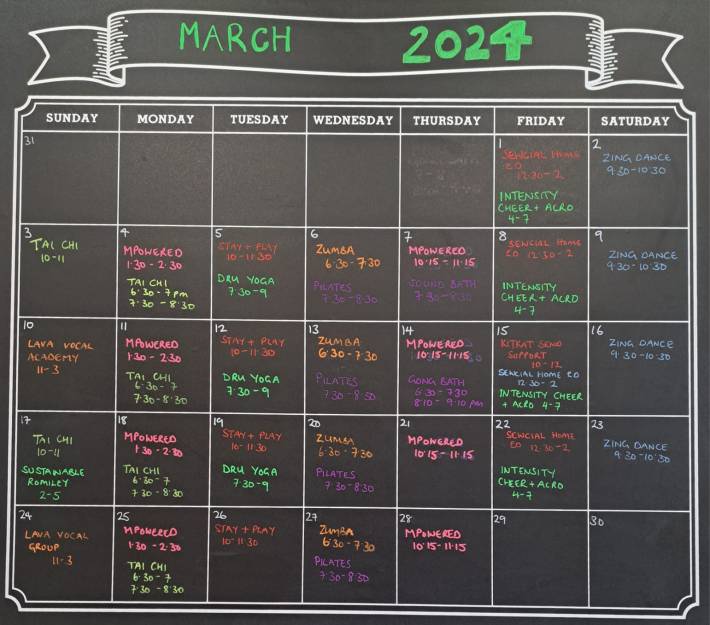 MARCH 2024
SUNDAY MONDAY TUESDAY WEDNESDAY THURSDAY FRIDAY SATURDAY
31
1
SEWCIAL HOME
ED
12:30-2
INTENSITY
CHEER + ACRO
4-7
2
ZING DANCE
9:30-10:30
3
TAI CHI
10-11
4
MPOWERED
1:30-2:30
TAI CHI
6:30-7pm
7:30-8:30
5
STAY + PLAY
10-11:30
DRU YOGA
7:30-9
6
ZUMBA
6:30-7:30
PILATES
7:30-8:30
7
MPOWERED
10:15-11:15
SOUND BATH
7:30-8:30
8
SEWCIAL HOME
ED 12:30-2
INTENSITY
CHEER + ACRO
4-7
9
ZING DANCE
9:30-10:30
10
LAVA VOCAL
ACADEMY
11-3
11
MPOWERED
1:30-2:30
TAI CHI
6:30-7
7:30-8:30
12
STAY + PLAY
10-11:30
DRU YOGA
7:30-9
13
ZUMBA
6:30-7:30
PILATES
7:30-8:30
14
MPOWERED
10:15-11:15
GONG BATH
6:30-7:30
8:10-9:10pm
15
KITKAT SEND
SUPPORT
10-12
SEWCIAL HOME ED
12:30-2
INTENSITY CHEER
+ ACRO 4-7
16
ZING DANCE
9:30-10:30
17
TAI CHI
10-11
SUSTAINABLE
ROMILEY
2-5
18
MPOWERED
1:30-2:30
TAI CHI
6:30-7
7:30-8:30
19
STAY + PLAY
10-11:30
DRU YOGA
7:30-9
20
ZUMBA
6:30-7:30
PILATES
7:30-8:30
21
MPOWERED
10:15-11:15
22
SEWCIAL HOME
ED 12:30-2
INTENSITY
CHEER + ACRO
4-7
23
ZING DANCE
9:30-10:30
24
LAVA VOCAL
GROUP
11-3
25
MPOWERED
1:30-2:30
TAI CHI
6:30-7
7:30-8:30
26
STAY + PLAY
10-11:30
27
ZUMBA
6:30-7:30
PILATES
7:30-8:30
28
MPOWERED
10:15-11:15
29
30